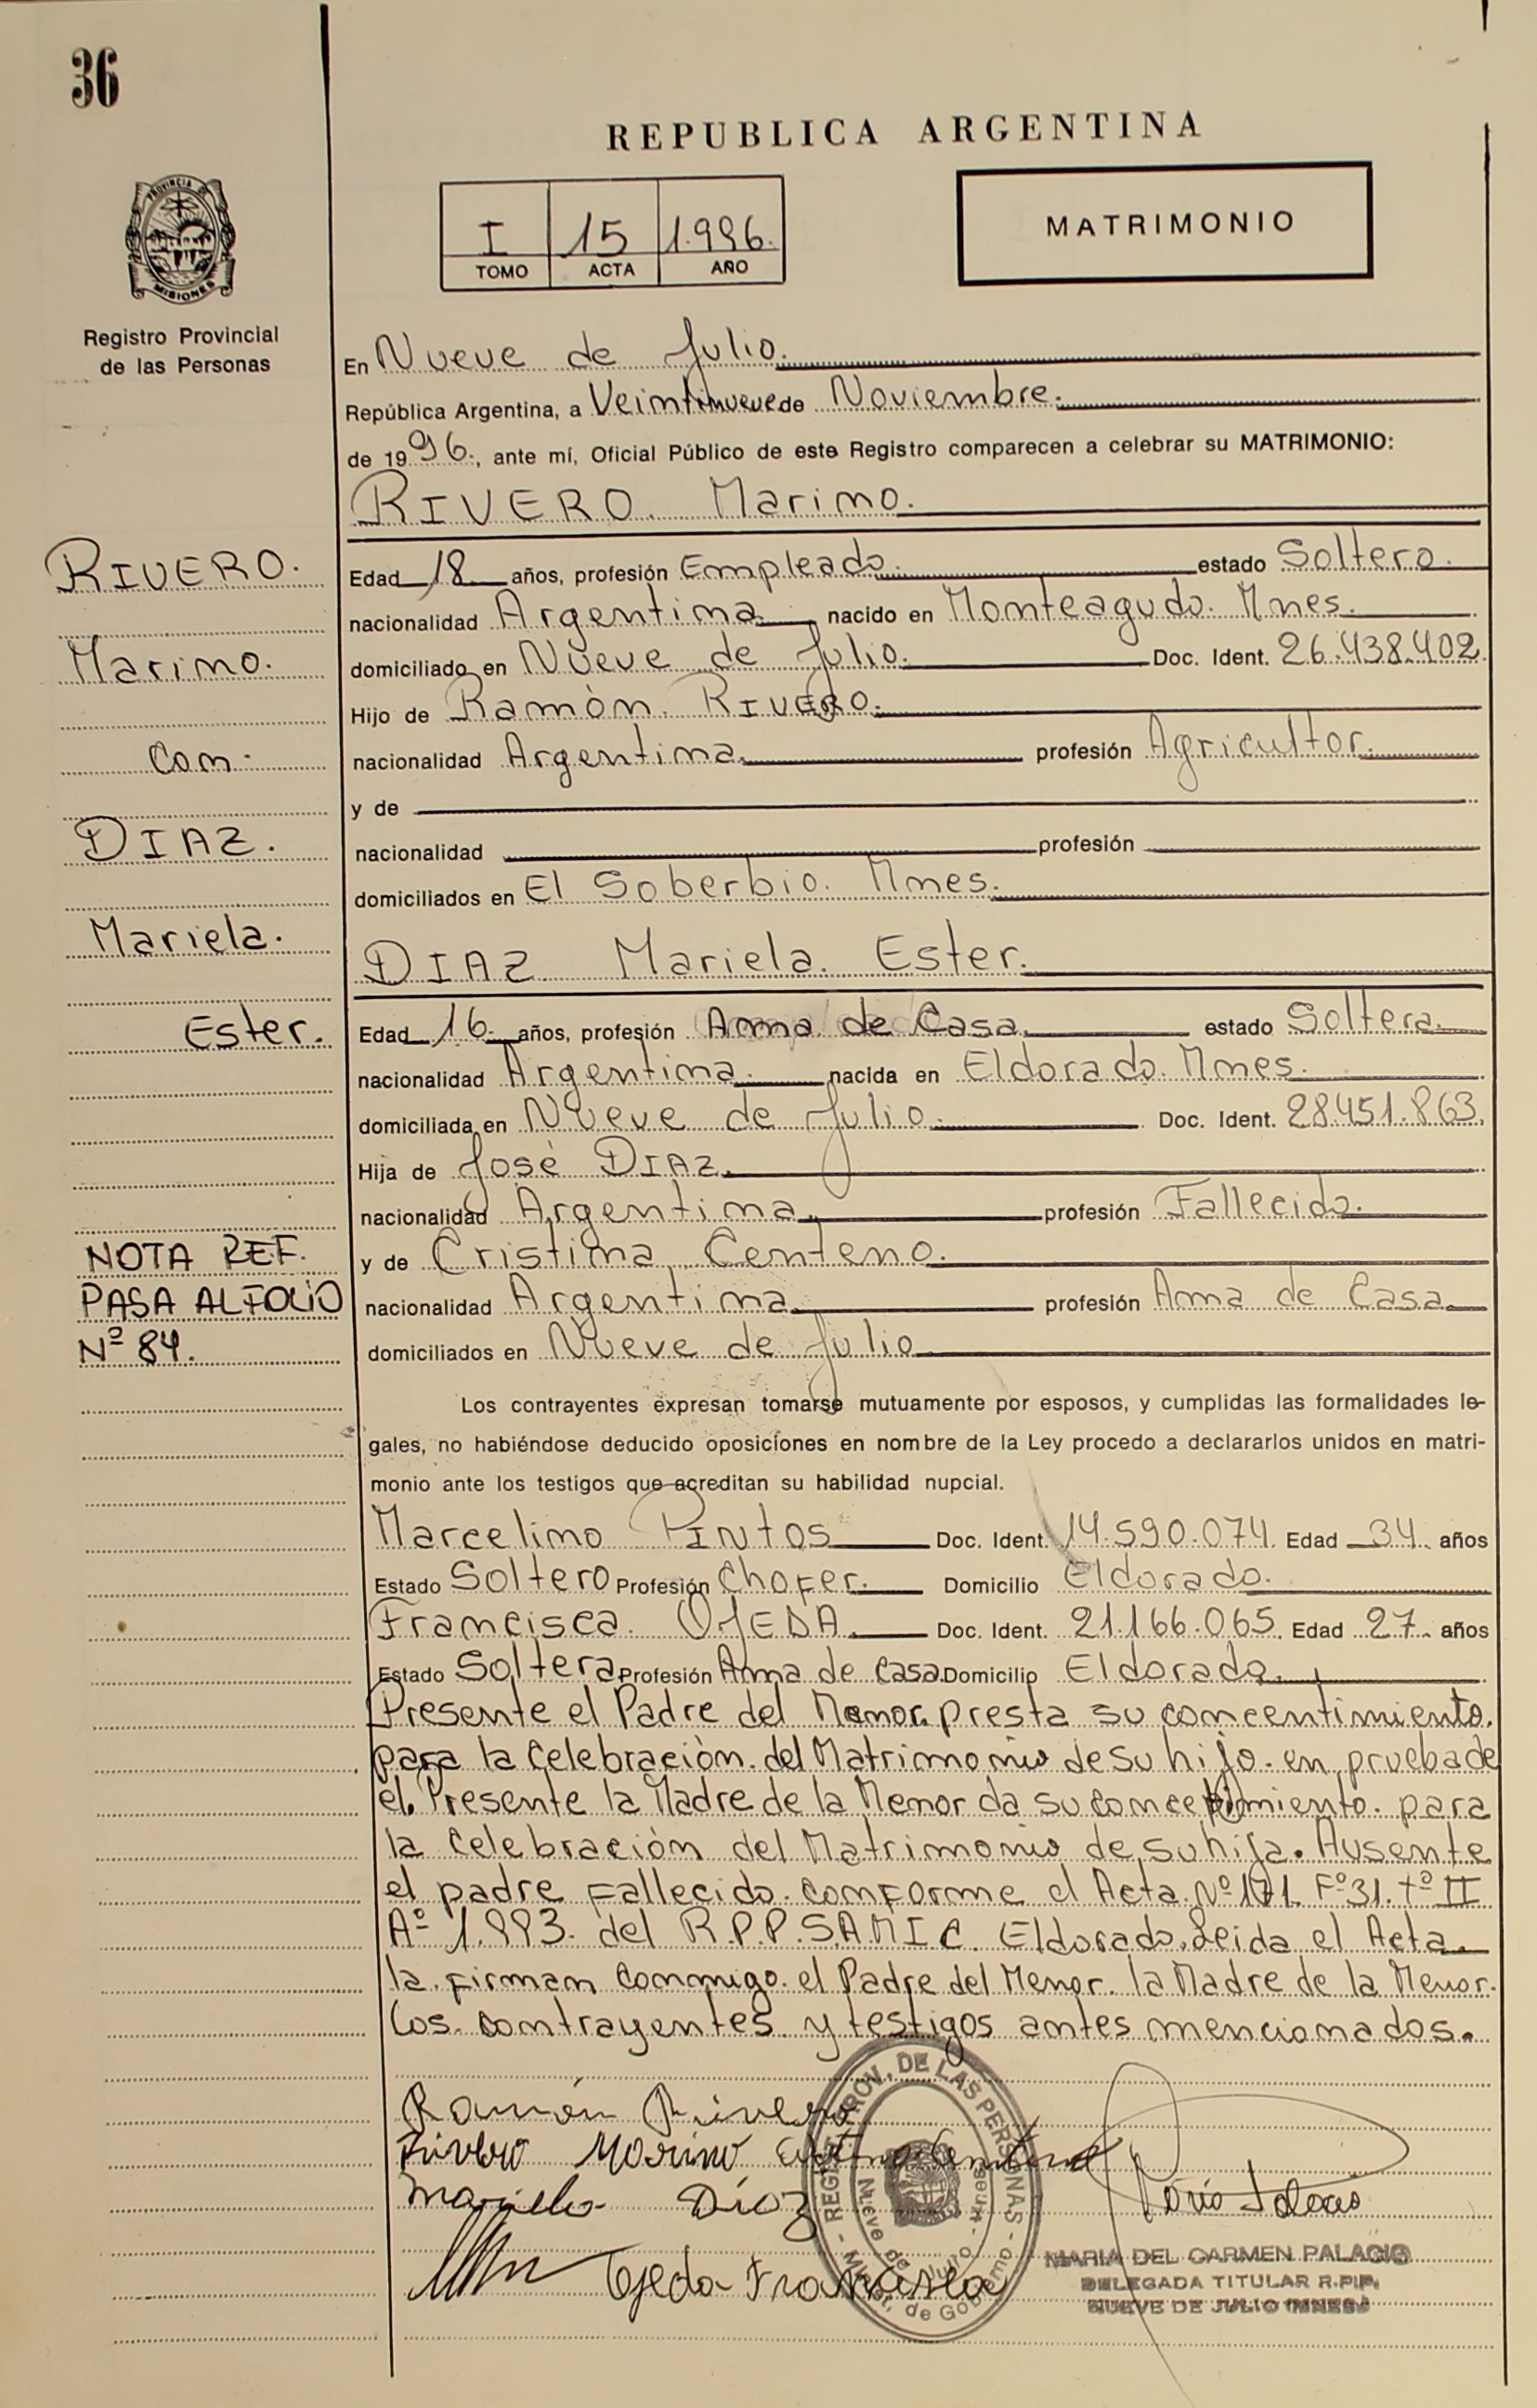 36
REPUBLICA ARGENTINA
I 15 1.996.
TOMO ACTA AÑO
MATRIMONIO
PROVINCIA DE
MISIONES
Registro Provincial
de las Personas
En Nueve de Julio.
República Argentina, a Veintinueve de Noviembre.
de 1996., ante mí, Oficial Público de este Registro comparecen a celebrar su MATRIMONIO:
RIVERO. Marino.
RIVERO.
Marino.
Con.
DIAZ.
Mariela.
Ester.
NOTA REF.
PASA AL FOLIO
Nº 84.
Edad 18 años, profesión Empleado. estado Soltero.
nacionalidad Argentina. nacido en Monteagudo. Mnes.
domiciliado en Nueve de Julio. Doc. Ident. 26.438.402
Hijo de Ramòn. RIVERO.
nacionalidad Argentina. profesión Agricultor.
y de
nacionalidad profesión
domiciliados en El Soberbio. Mnes.
DIAZ Mariela. Ester.
Edad 16. años, profesión Ama de Casa. estado Soltera.
nacionalidad Argentina. nacida en Eldorado. Mnes.
domiciliada en Nueve de Julio. Doc. Ident. 28.451.863.
Hija de José DIAZ.
nacionalidad Argentina. profesión Fallecido.
y de Cristina Centeno.
nacionalidad Argentina. profesión Ama de Casa
domiciliados en Nueve de Julio
Los contrayentes expresan tomarse mutuamente por esposos, y cumplidas las formalidades le-
gales, no habiéndose deducido oposiciones en nombre de la Ley procedo a declararlos unidos en matri-
monio ante los testigos que acreditan su habilidad nupcial.
Marcelino PINtOS Doc. Ident. 14.590.074. Edad 34. años
Estado Soltero Profesión Chofer. Domicilio Eldorado.
Francisca. OJEDA. Doc. Ident. 21.166.065. Edad 27. años
Estado Soltera Profesión Ama de Casa. Domicilio Eldorado.
Presente el Padre del Menor. presta su concentimiento.
para la Celebraciòn. del Matrimonio de su hijo. en prueba de
el. Presente la Madre de la Menor da su concentimiento. para
la Celebraciòn del Matrimonio de su hija. Ausente
el padre Fallecido. conforme el Acta. Nº 171. Fº 31. tº II
Aº 1.993. del R.P.P. S.A.M.I.C. Eldorado. Leida el Acta.
la. Firman conmigo. el Padre del Menor. la Madre de la Menor.
los. contrayentes y testigos antes mencionados.
Ramón Rivero
Rivero Marino Cristina Centeno
Mariela Díaz
Ojeda Francisca
REGIST. PROV. DE LAS PERSONAS
Nueve de Julio - Mnes.
Minist. de Gobierno
MARIA DEL CARMEN PALACIO
DELEGADA TITULAR R.P.P.
NUEVE DE JULIO (MNES.)